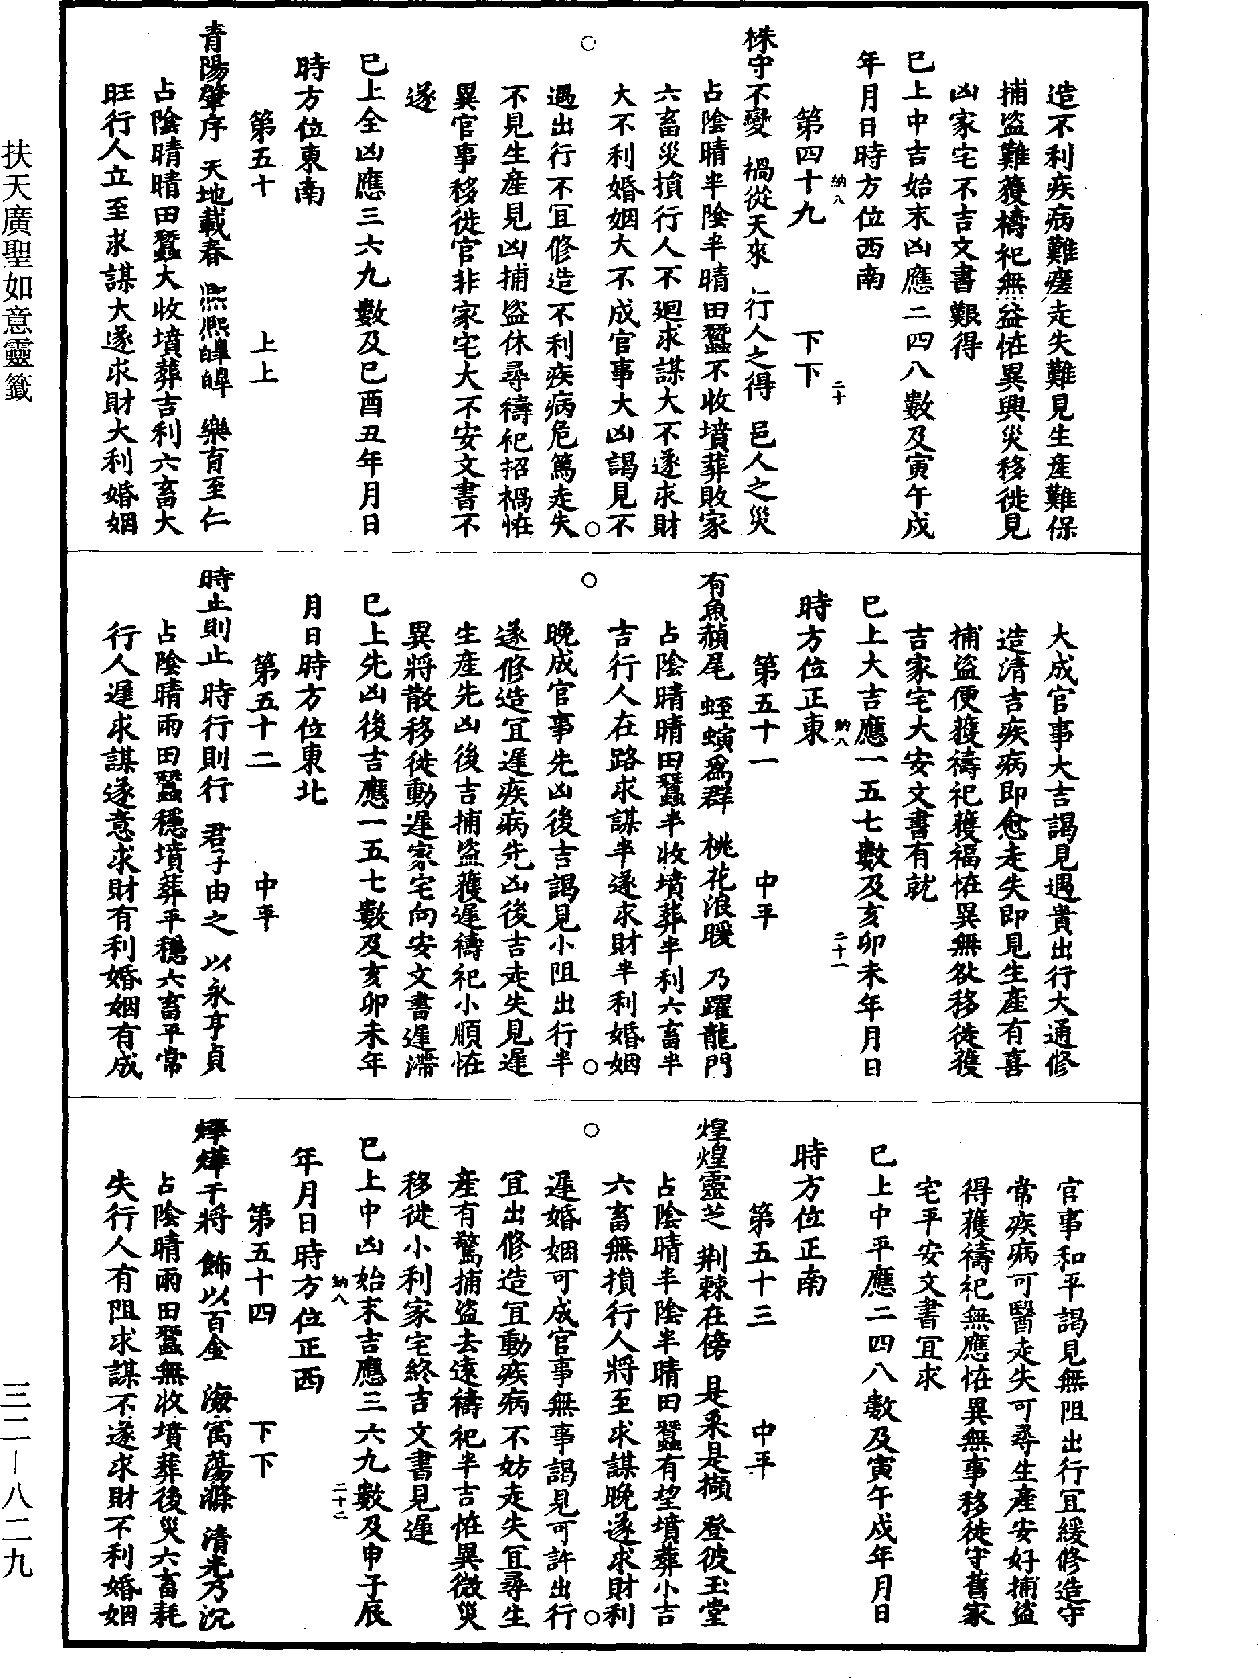 造不利疾病難瘥走失難見生產難保
捕盜難獲禱祀無益恠異興災移徙見
凶家宅不吉文書艱得
巳上中吉始末凶應二四八數及寅午戌
年月日時方位西南
納八
二十
第四十九 下下
株守不變 禍從天來 行人之得 邑人之災
占陰晴半陰半晴田蠶不收墳葬敗家
六畜災損行人不廻求謀大不遂求財
大不利婚姻大不成官事大凶謁見不
遇出行不冝修造不利疾病危篤走失
不見生產見凶捕盜休尋禱祀招禍恠
異官事移徙官非家宅大不安文書不
遂
巳上全凶應三六九數及巳酉丑年月日
時方位東南
第五十 上上
青陽肇序 天地載春 熙熙皥皥 樂育至仁
占陰晴晴田蠶大收墳葬吉利六畜大
旺行人立至求謀大遂求財大利婚姻
大成官事大吉謁見遇貴出行大通修
造清吉疾病即愈走失即見生產有喜
捕盜便獲禱祀獲福恠異無咎移徙獲
吉家宅大安文書有就
巳上大吉應一五七數及亥卯未年月日
納八
二十一
時方位正東
第五十一 中平
有魚赬尾 蛭螾爲群 桃花浪暖 乃躍龍門
占陰晴晴田蠶半收墳葬半利六畜半
吉行人在路求謀半遂求財半利婚姻
晚成官事先凶後吉謁見小阻出行半
遂修造冝遲疾病先凶後吉走失見遲
生產先凶後吉捕盜獲遲禱祀小順恠
異將散移徙動遲家宅向安文書遲滯
巳上先凶後吉應一五七數及亥卯未年
月日時方位東北
第五十二 中平
時止則止 時行則行 君子由之 以永亨貞
占陰晴雨田蠶穩墳葬平穩六畜平常
行人遲求謀遂意求財有利婚姻有成
官事和平謁見無阻出行冝緩修造守
常疾病可醫走失可尋生產安好捕盜
得獲禱祀無應恠異無事移徙守舊家
宅平安文書冝求
巳上中平應二四八數及寅午戌年月日
時方位正南
第五十三 中平
煌煌靈芝 荆棘在傍 是采是擷 登彼玉堂
占陰晴半陰半晴田蠶有望墳葬小吉
六畜無損行人將至求謀晚遂求財利
遲婚姻可成官事無事謁見可許出行
冝出修造冝動疾病不妨走失冝尋生
產有驚捕盜去遠禱祀半吉恠異微災
移徙小利家宅終吉文書見遲
巳上中凶始末吉應三六九數及申子辰
納八
二十二
年月日時方位正西
第五十四 下下
燁燁干將 飾以百金 海寓蕩滌 清光乃沉
占陰晴雨田蠶無收墳葬後災六畜耗
失行人有阻求謀不遂求財不利婚姻
扶天廣聖如意靈籤
三二－八二九